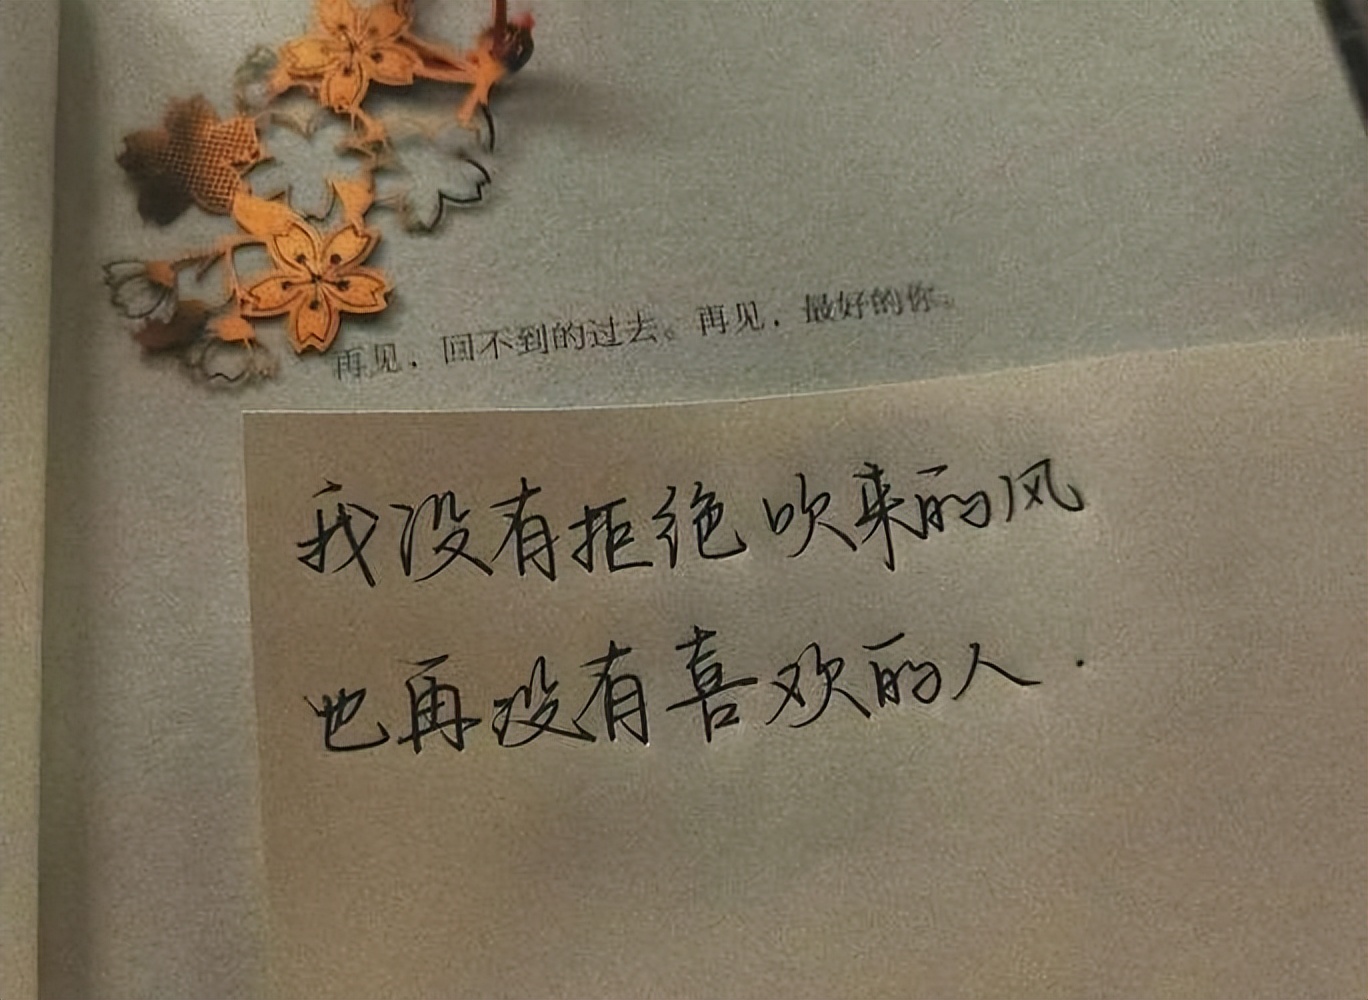 再见，回不到的过去。再见，最好的你。
我没有拒绝吹来的风
也再没有喜欢的人.